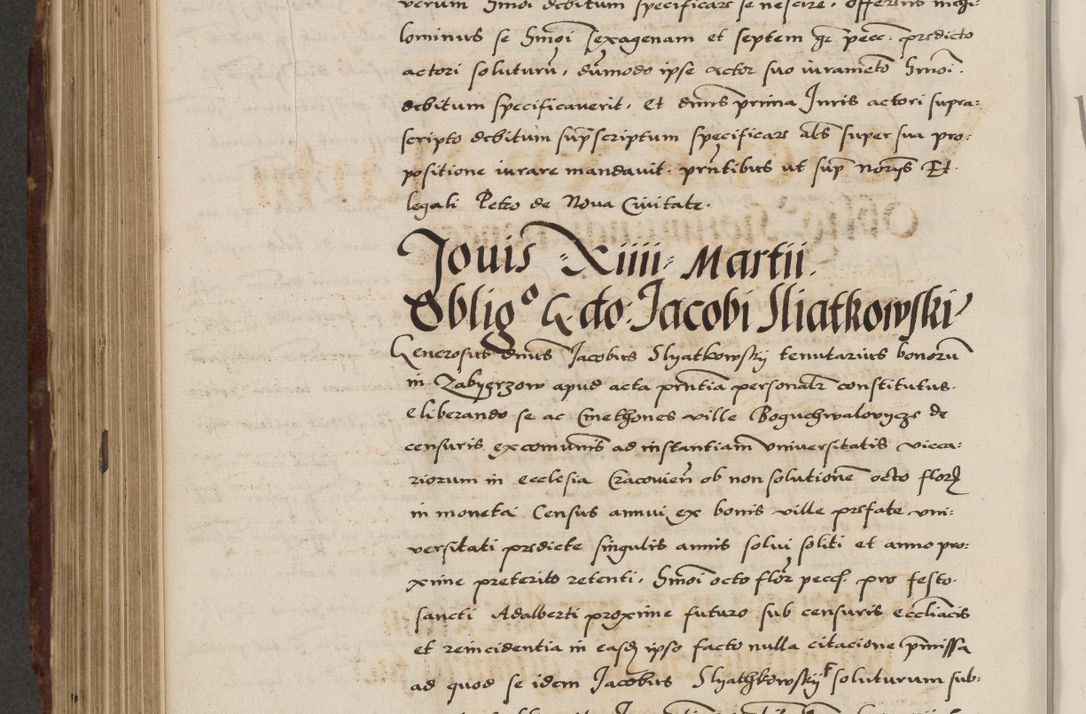 verum Hmoi debitum specificare se nescire. Offerens nichi-
lominus se Hmoi sexagenam et septem gr pecc. predicto
actori soluturū, dūmodo ipse actor suo iuramēto Hmoi.
debitum specificaverit. Et dnus prima Juris actori supra:
scripto debitum supscriptum specificare als super sua pro:
positione iurare mandavit. pñtibus ut sup Norijs Et
legali Petro de Nova Civitate.
Jovis Xiiii Martii.
Obligo G. do. Jacobi Sliatkowski
Generosus dnus Jacobus Slyatkowsky tenutarius bonorū
in Zabyerzow apud acta pñtia personalr constitutus.
eliberando se ac Cmethones ville Boguchwalovycze de
censuris excomunis ad instantiam Universitatis vicca:
riorum in ecclesia Cracovien ob non solutionē octo florz
in moneta Census annui ex bonis ville prefate uni:
versitati predicte singulis annis solvi soliti et anno pro:
xime preterito retenti. Hmoi octo flor pecc. pro festo
sancti Adalberti proxime futuro sub censuris eccliacis
et reincidentia in easdz ipso facto nulla citacione pmissa
ad quod se idem Jacobus Slyathkowsky soluturum sub: